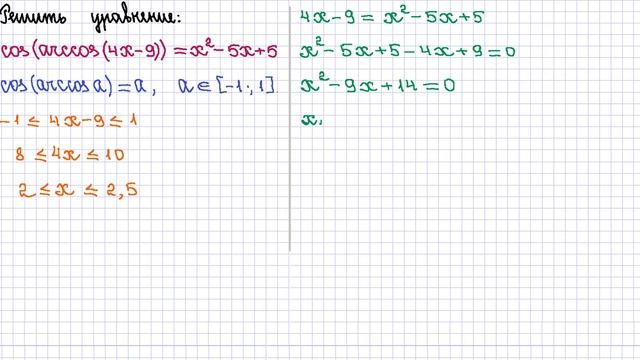 Решить уравнение:
cos(arccos(4x-9)) = x²-5x+5
cos(arccos a) = a, a ∈ [-1; 1]
-1 ≤ 4x-9 ≤ 1
8 ≤ 4x ≤ 10
2 ≤ x ≤ 2,5
4x-9 = x²-5x+5
x²-5x+5-4x+9=0
x²-9x+14=0
x,